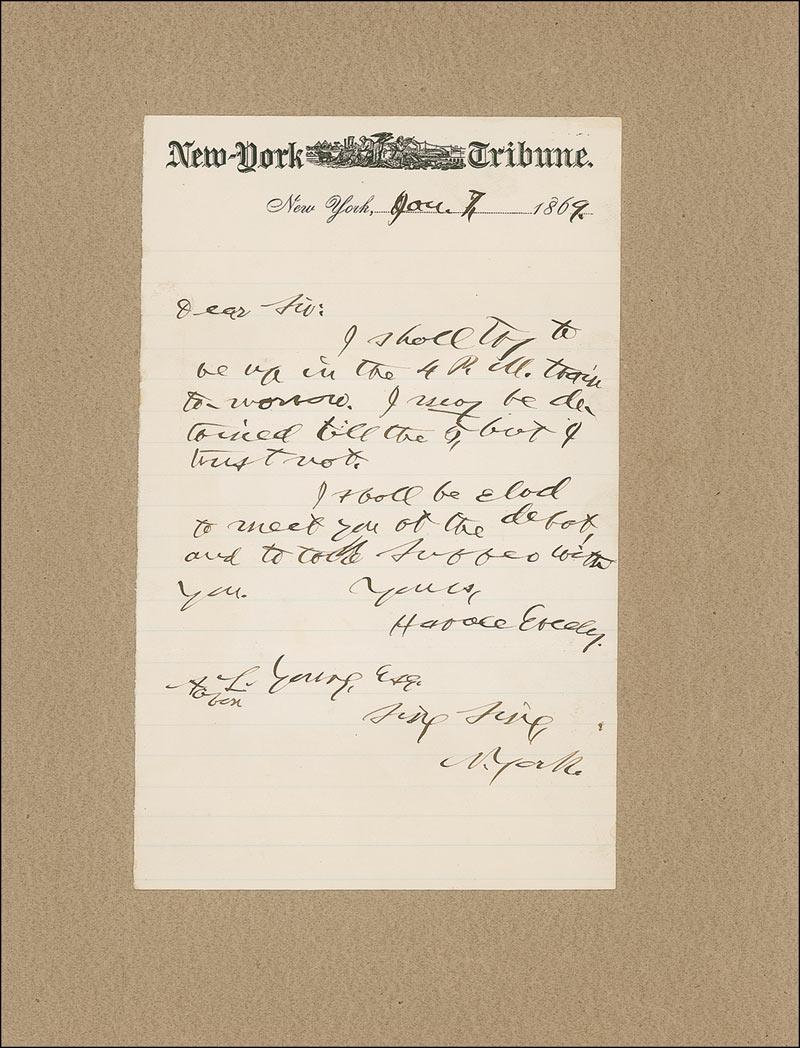 New-York Tribune.
New York, Jan. 7, 1869.
Dear Sir:
I shall try to
be up in the 4 P. M. train
to-morrow. I may be de-
tained till the 5, but I
trust not.
I shall be glad
to meet you at the depot,
and to take supper with
you. Yours,
Horace Greeley.
L. Young, Esq.
Sing Sing,
N. York.